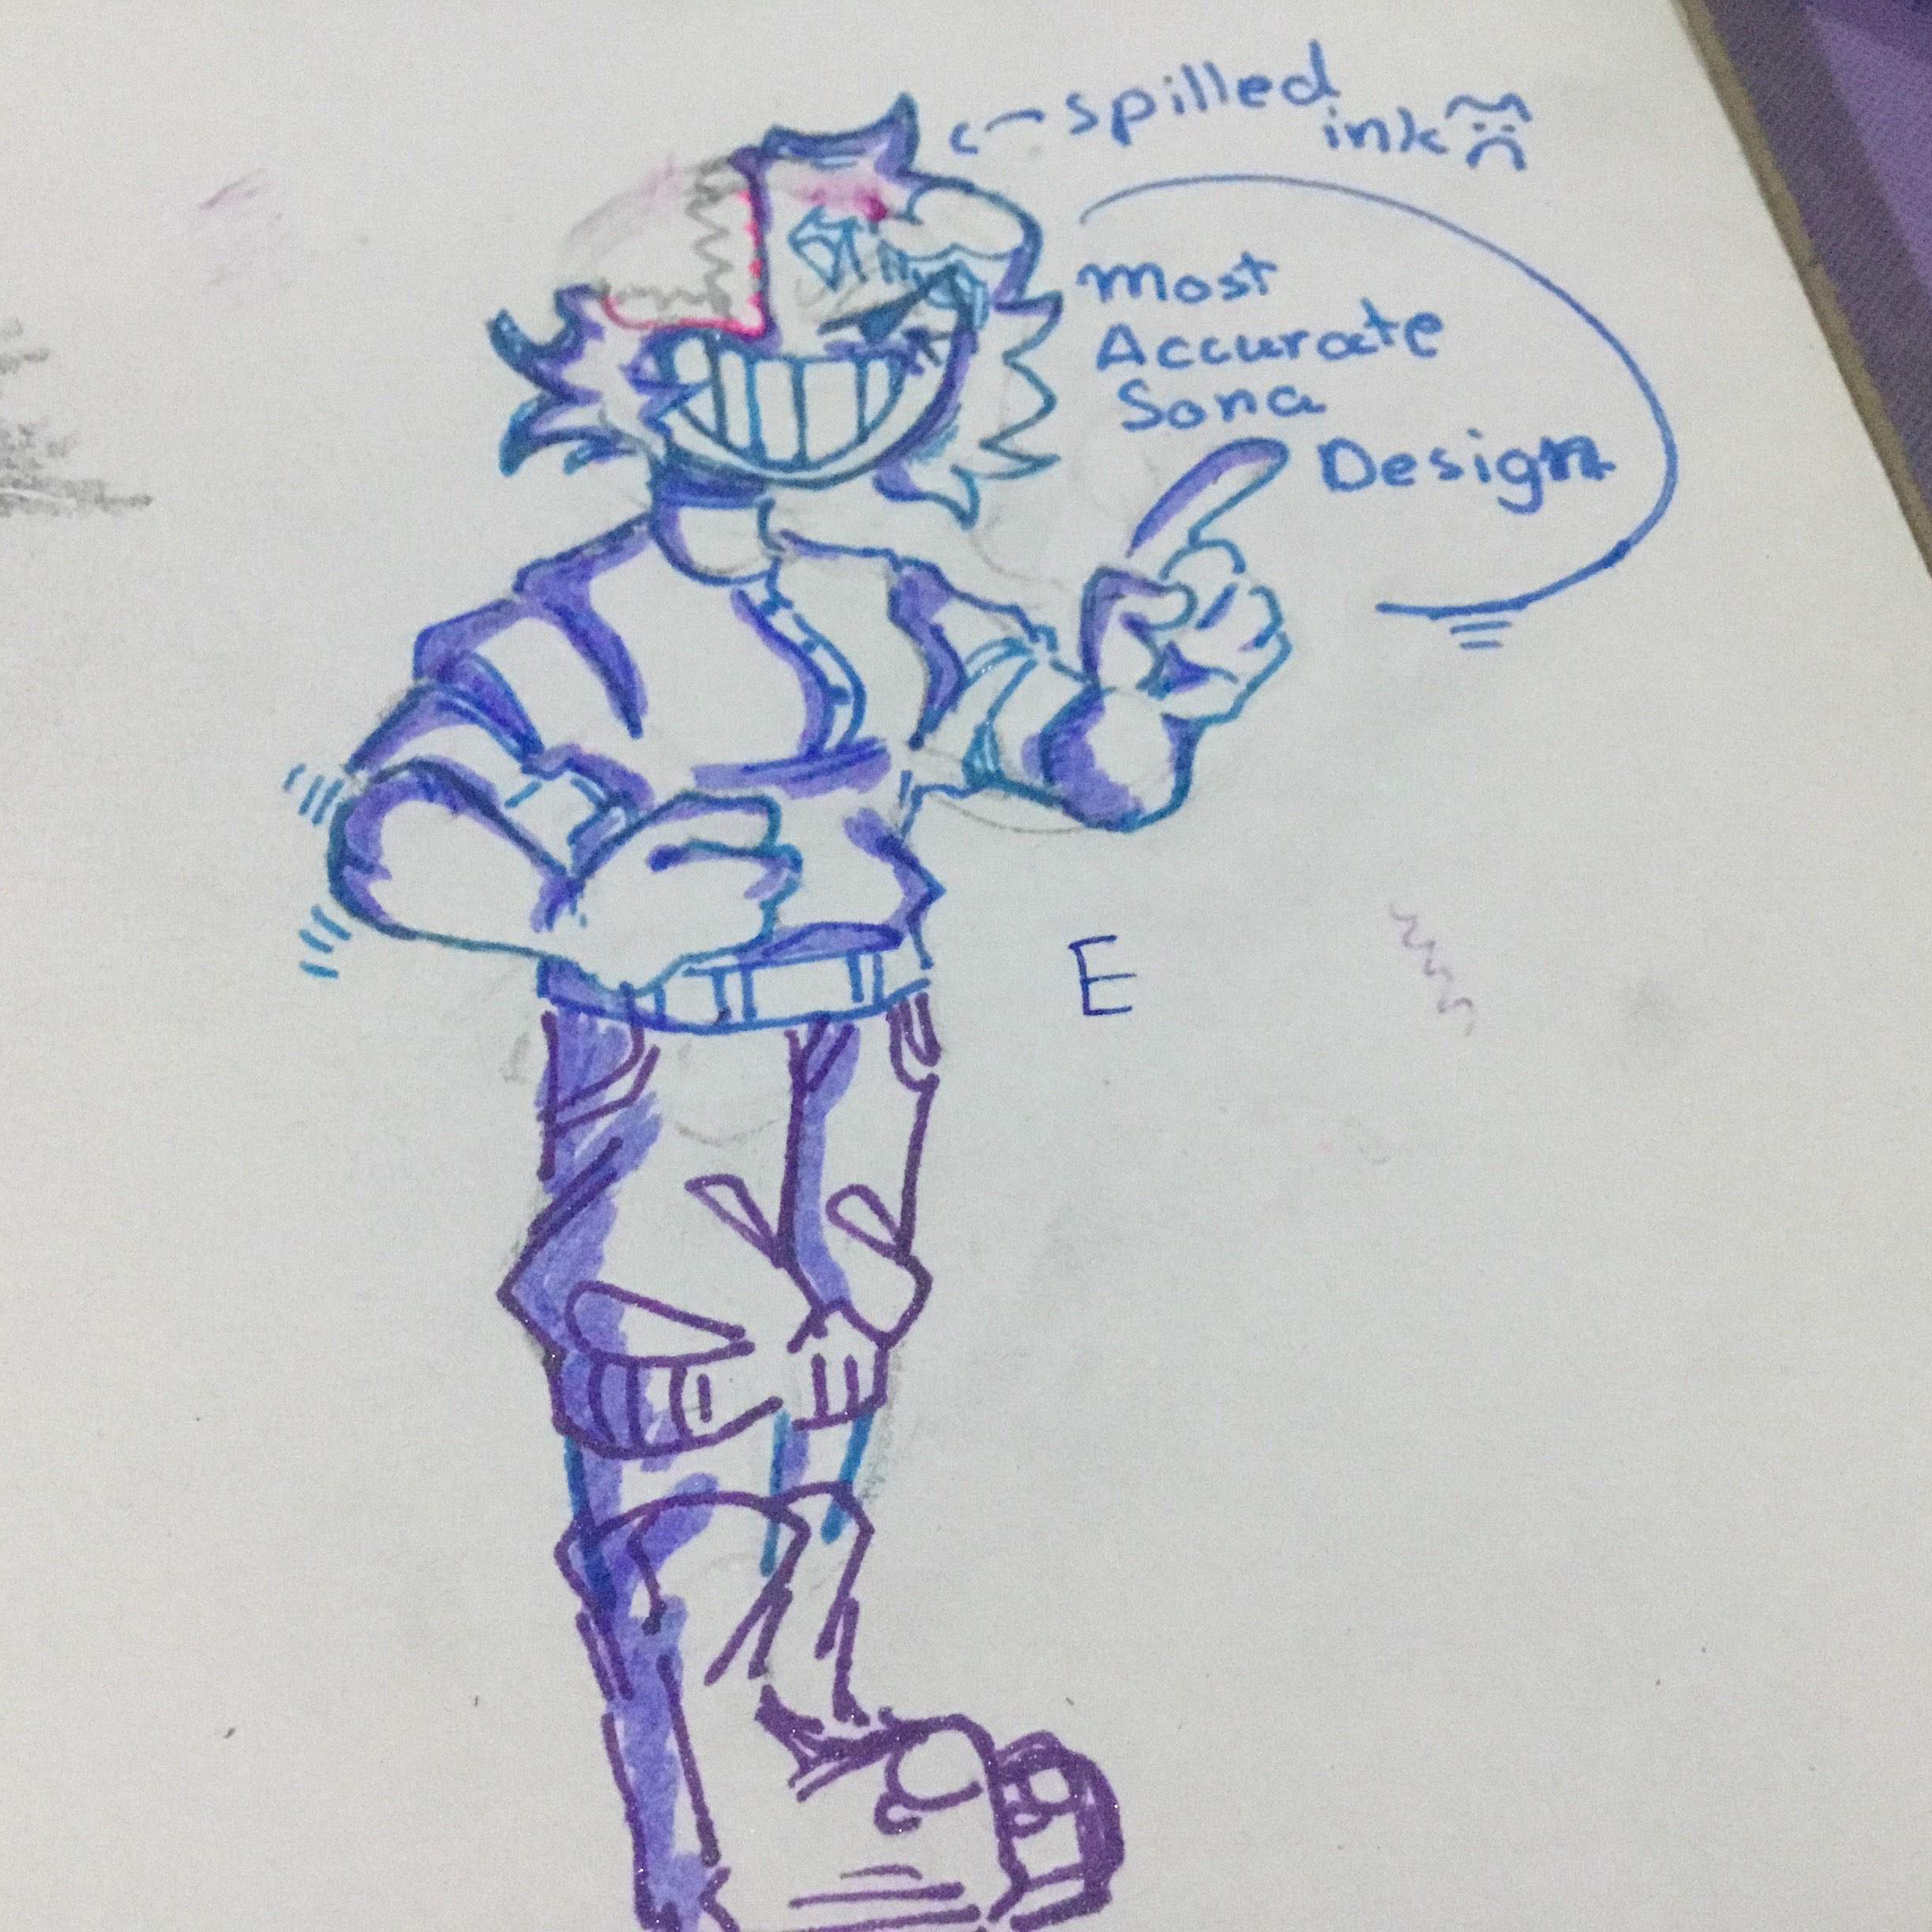 spilled
ink
Most
Accurate
Sona
Design
E